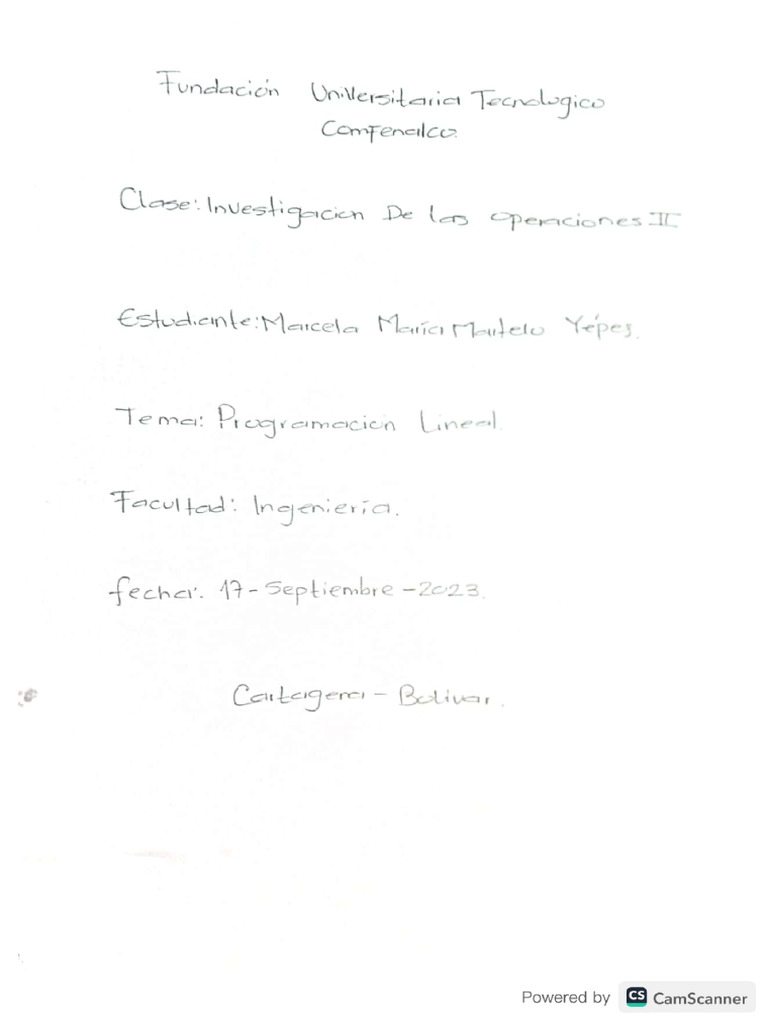 Fundación Universitaria Tecnologico
Comfenalco.
Clase: Investigacion De las operaciones II
Estudiante: Marcela María Martelo Yépes.
Tema: Programacion Lineal.
Facultad: Ingeniería.
fecha: 17-Septiembre-2023.
Cartagena - Bolivar.
Powered by CS CamScanner